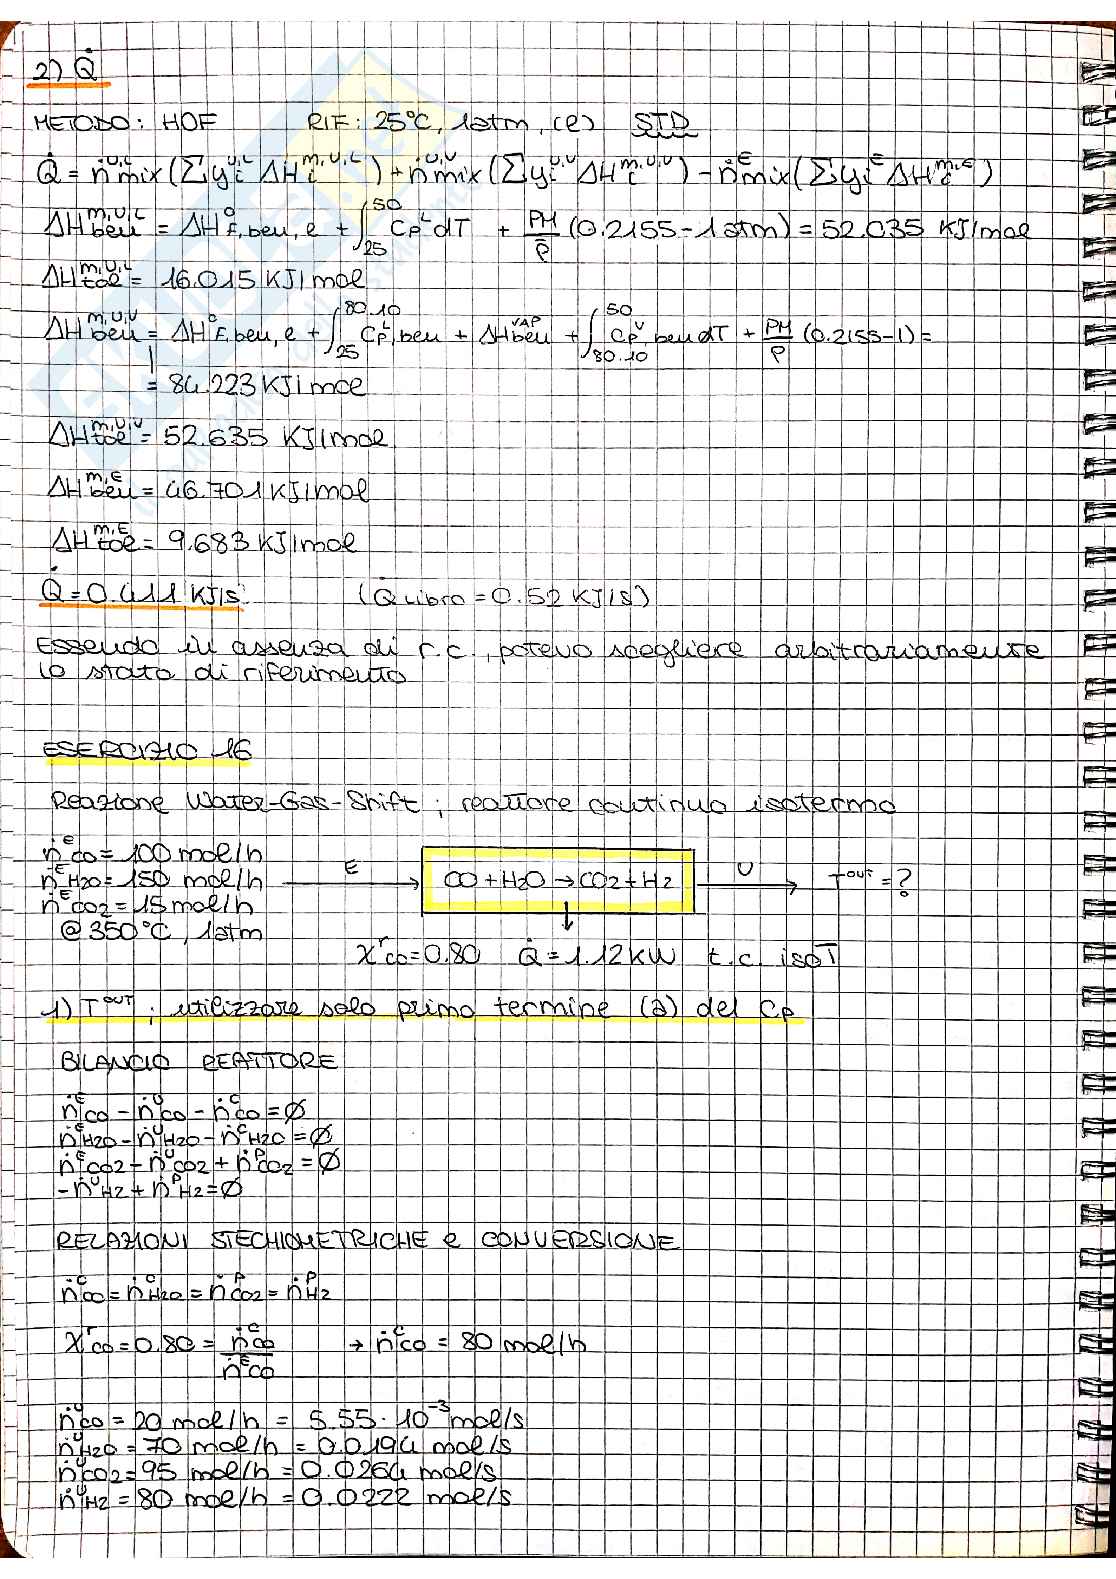 2) Q̇
METODO: HOF RIF: 25°C, 1atm, (l) STD
Q̇ = ṅmix^U,L (Σyi^U,L ΔHi^m,U,L) + ṅmix^U,V (Σyi^U,V ΔHi^m,U,V) - ṅmix^E (Σyi^E ΔHi^m,E)
ΔHben^m,U,L = ΔH°F,ben,l + ∫25^50 Cp^L dT + PM/ρ̄ (0.2155-1atm) = 52.035 KJ/mol
ΔHtol^m,U,L = 16.015 KJ/mol
ΔHben^m,U,V = ΔH°F,ben,l + ∫25^80.10 Cp^L,ben + ΔHben^VAP + ∫80.10^50 Cp^V ben dT + PM/ρ (0.2155-1) =
= 84.223 KJ/mol
ΔHtol^m,U,V = 52.635 KJ/mol
ΔHben^m,E = 46.701 KJ/mol
ΔHtol^m,E = 9.683 KJ/mol
Q̇ = 0.411 KJ/s (Q̇ libro = 0.52 KJ/s)
Essendo in assenza di r.c., potevo scegliere arbitrariamente
lo stato di riferimento
ESERCIZIO 16
Reazione Water-Gas-Shift; reattore continuo isotermo
ṅ^E CO = 100 mol/h
ṅ^E H2O = 150 mol/h E → CO + H2O → CO2 + H2 U → T^OUT = ?
ṅ^E CO2 = 15 mol/h
@ 350°C, 1atm
X^r CO = 0.80 Q̇ = 1.12 KW t.c. isoT
1) T^OUT; utilizzare solo primo termine (a) del Cp
BILANCIO REATTORE
ṅ^E CO - ṅ^U CO - ṅ^C CO = ∅
ṅ^E H2O - ṅ^U H2O - ṅ^C H2O = ∅
ṅ^E CO2 - ṅ^U CO2 + ṅ^P CO2 = ∅
-ṅ^U H2 + ṅ^P H2 = ∅
RELAZIONI STECHIOMETRICHE e CONVERSIONE
ṅ^C CO = ṅ^C H2O = ṅ^P CO2 = ṅ^P H2
X^r CO = 0.80 = ṅ^C CO / ṅ^E CO → ṅ^C CO = 80 mol/h
ṅ^U CO = 20 mol/h = 5.55·10^-3 mol/s
ṅ^U H2O = 70 mol/h = 0.0194 mol/s
ṅ^U CO2 = 95 mol/h = 0.0264 mol/s
ṅ^U H2 = 80 mol/h = 0.0222 mol/s